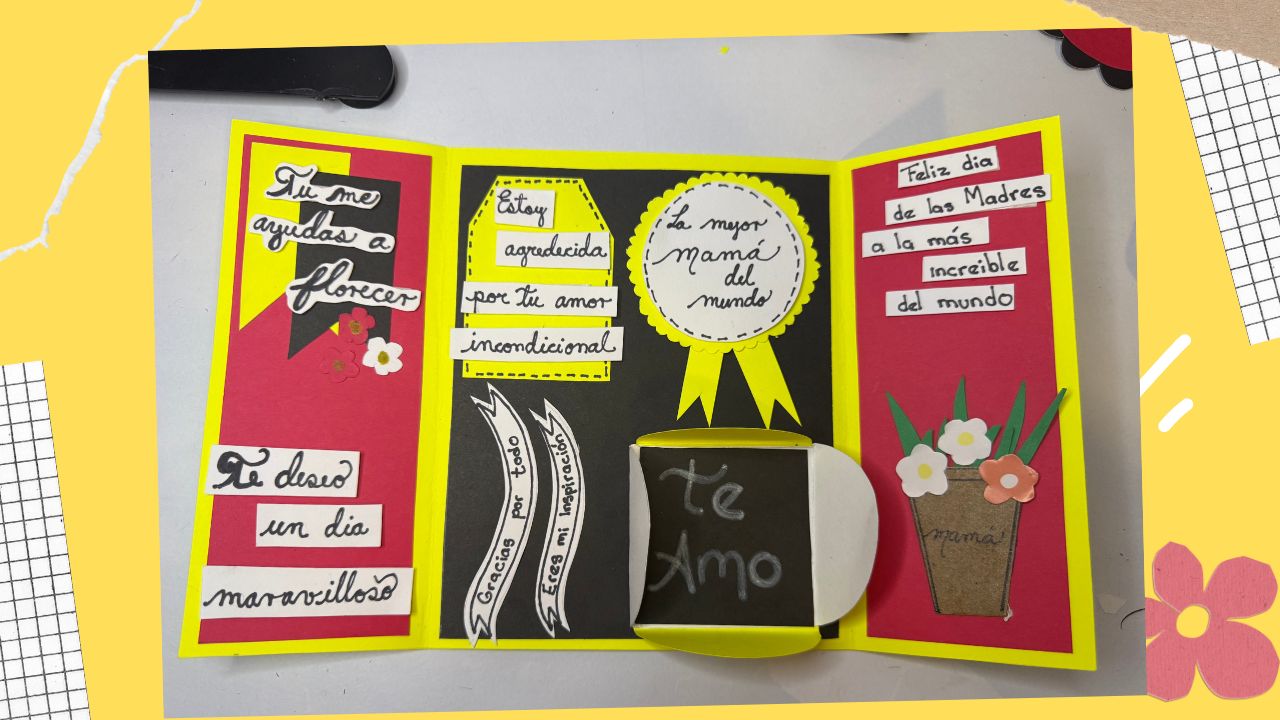 Tu me
ayudas a
florecer
Te deseo
un dia
maravilloso
Estoy
agredecida
por tu amor
incondicional
Gracias por todo
Eres mi Inspiración
La mejor
mamá
del
mundo
Te
Amo
Feliz dia
de las Madres
a la más
increible
del mundo
mamá